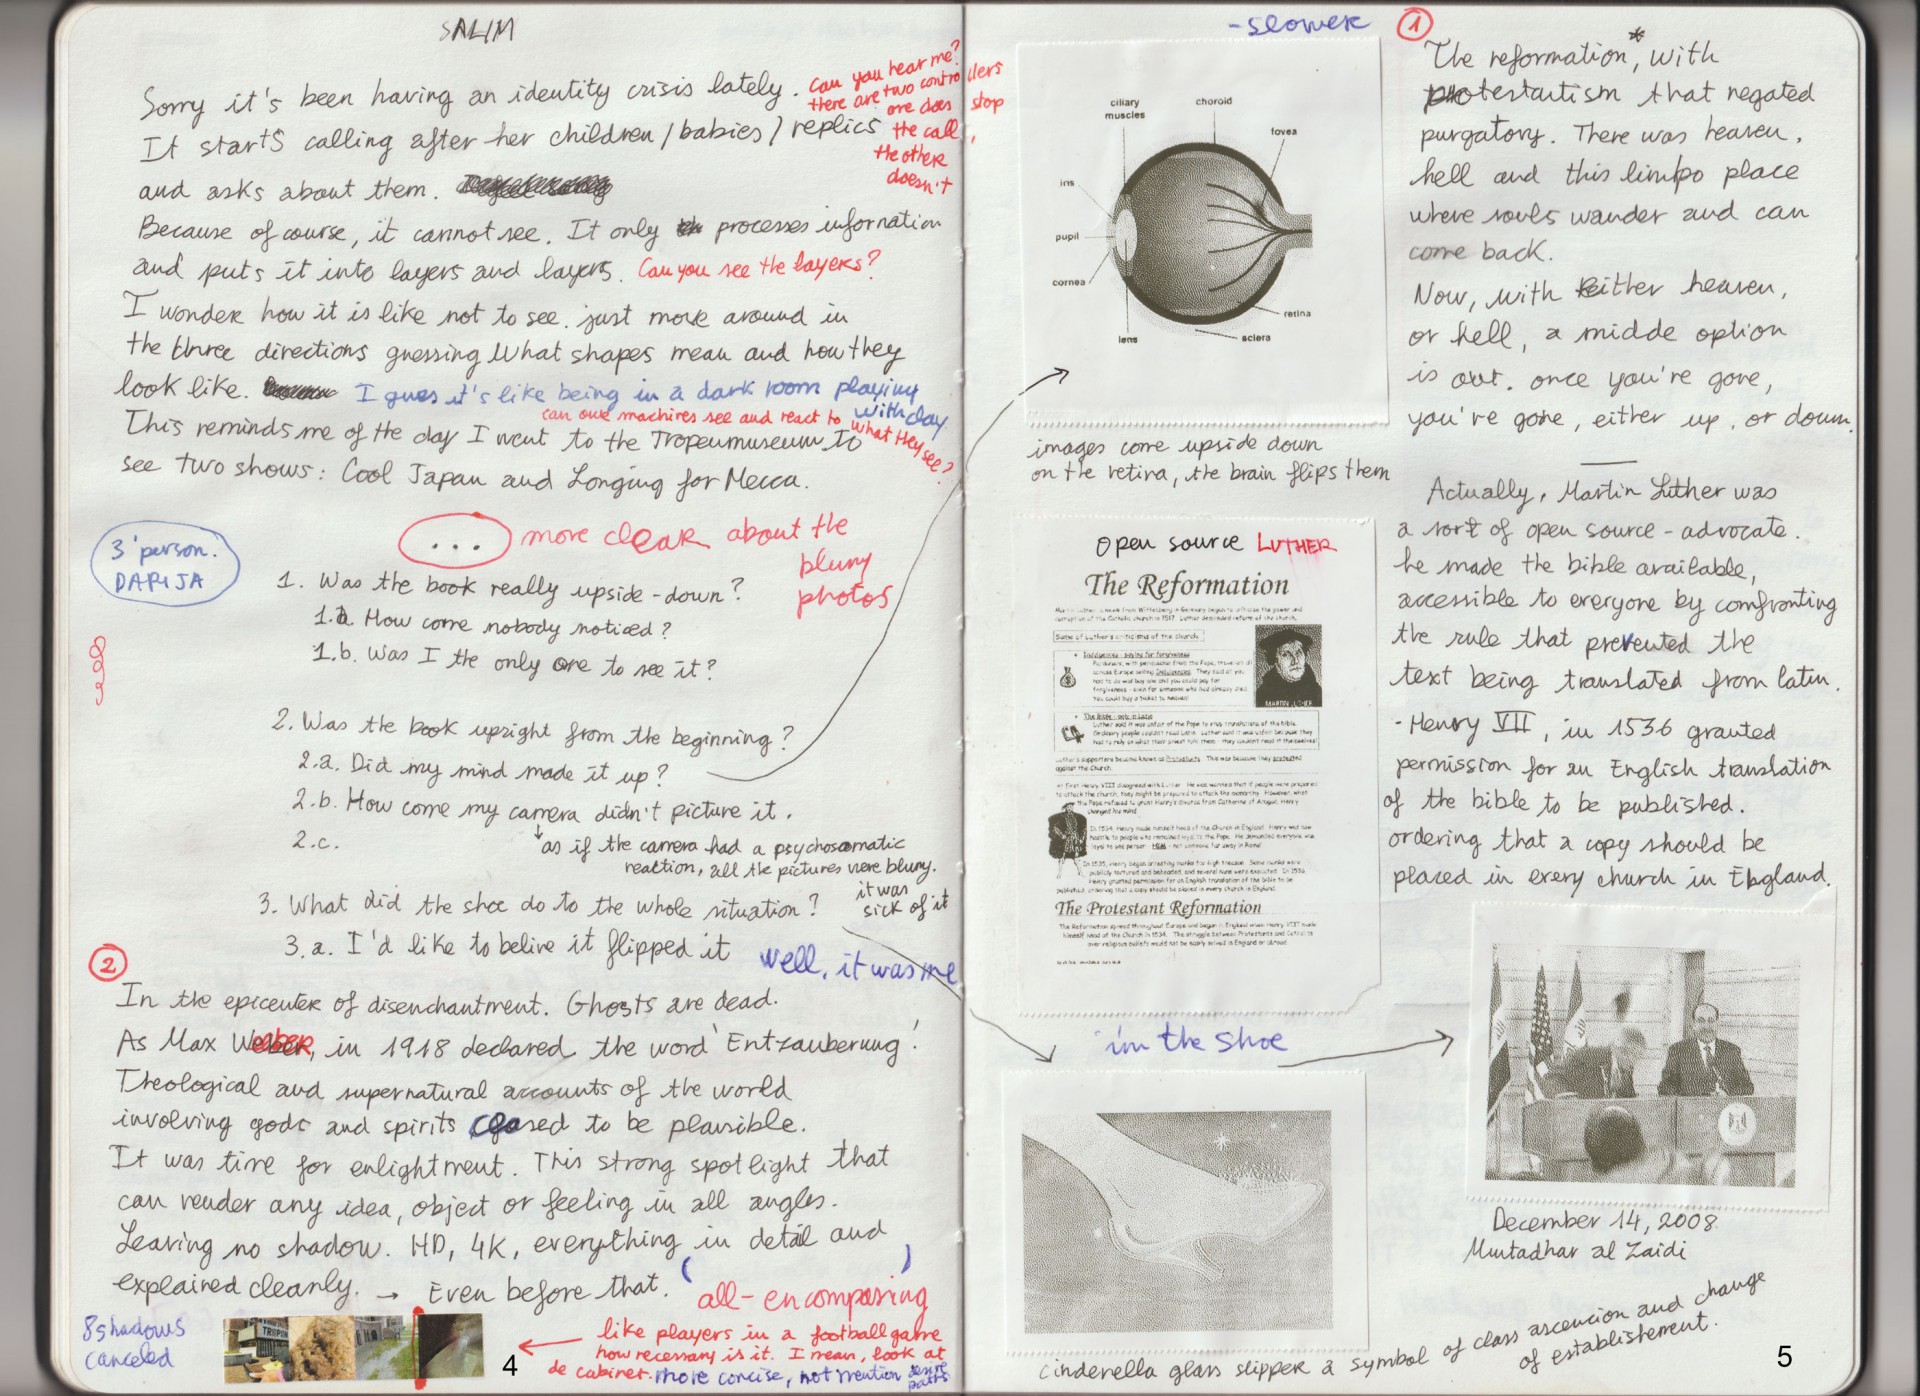 SALIM
Sorry it's been having an identity crisis lately.
can you hear me?
there are two controllers
one does stop
the call,
the other
doesn't
It starts calling after her children / babies / replics
and asks about them.
Because of course, it cannot see. It only processes information
and puts it into layers and layers. Can you see the layers?
I wonder how it is like not to see. just move around in
the three directions guessing what shapes mean and how they
look like. I gues it's like being in a dark room playing
with clay
can owe machires see and react to
what they see?
This reminds me of the day I went to the Tropenmuseum to
see two shows: Cool Japan and Longing for Mecca.
3' person.
DARIJA
... more clear about the
blurry
photos
1. Was the book really upside-down?
1.a How come nobody noticed?
1.b. Was I the only one to see it?
2. Was the book upright from the beginning?
2.a. Did my mind made it up?
2.b. How come my camera didn't picture it.
2.c.
as if the camera had a psychosomatic
reaction, all the pictures were blurry.
it was
sick of it
3. What did the shoe do to the whole situation?
3.a. I'd like to belive it flipped it
well, it was me
2
In the epicenter of disenchantment. Ghosts are dead.
As Max Weber, in 1918 declared the word 'Entzauberung'.
Theological and supernatural accounts of the world
involving gods and spirits ceased to be plausible.
It was time for enlightment. This strong spotlight that
can render any idea, object or feeling in all angles.
Leaving no shadow. HD, 4K, everything in detail and
explained cleanly. → Even before that. ( )
all-encompasing
8 shadows
canceled
like players in a football game
how necessary is it. I mean, look at
de cabinet. more concise, not mention desire
paths
4
- slower
ciliary
muscles
choroid
fovea
iris
pupil
cornea
lens
retina
sclera
images come upside down
on the retina, the brain flips them
open source LUTHER
The Reformation
Some of Luther's criticisms of the church
Indulgences - paying for forgiveness
MARTIN LUTHER
The Bible - only in Latin
The Protestant Reformation
i'm the shoe
1
The reformation*, with
protestartism that negated
purgatory. There was heaven,
hell and this limbo place
where souls wander and can
come back.
Now, with either heaven,
or hell, a midde option
is out. once you're gone,
you're gone, either up, or down.
Actually, Martin Luther was
a sort of open source - advocate.
he made the bible available,
accessible to everyone by comfronting
the rule that prevented the
text being translated from latin.
- Henry VII, in 1536 granted
permission for an English translation
of the bible to be published.
ordering that a copy should be
placed in every church in England.
December 14, 2008.
Muntadhar al Zaidi
cinderella glass slipper a symbol of class ascencion and change
of establistement.
5